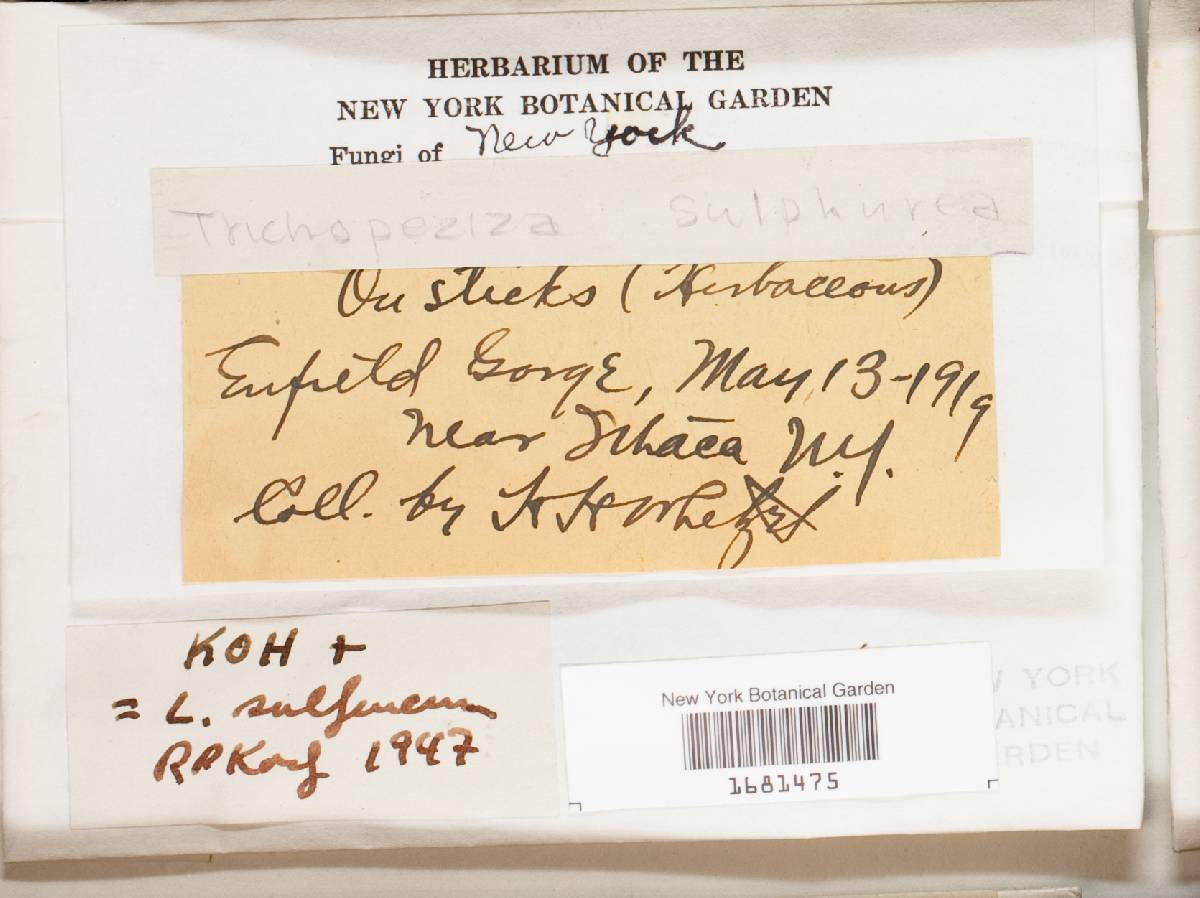 HERBARIUM OF THE
NEW YORK BOTANICAL GARDEN
Fungi of New York
Trichopeziza sulphurea
On sticks (Herbaceous)
Enfield Gorge, May 13-1919
Near Ithaca N.Y.
Coll. by H H Whetzel
KOH +
= L. sulfureum
RPKorf 1947
New York Botanical Garden
1681475
YORK
ANICAL
RDEN